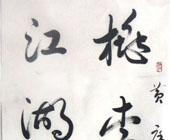 黄庭
桃李
江湖